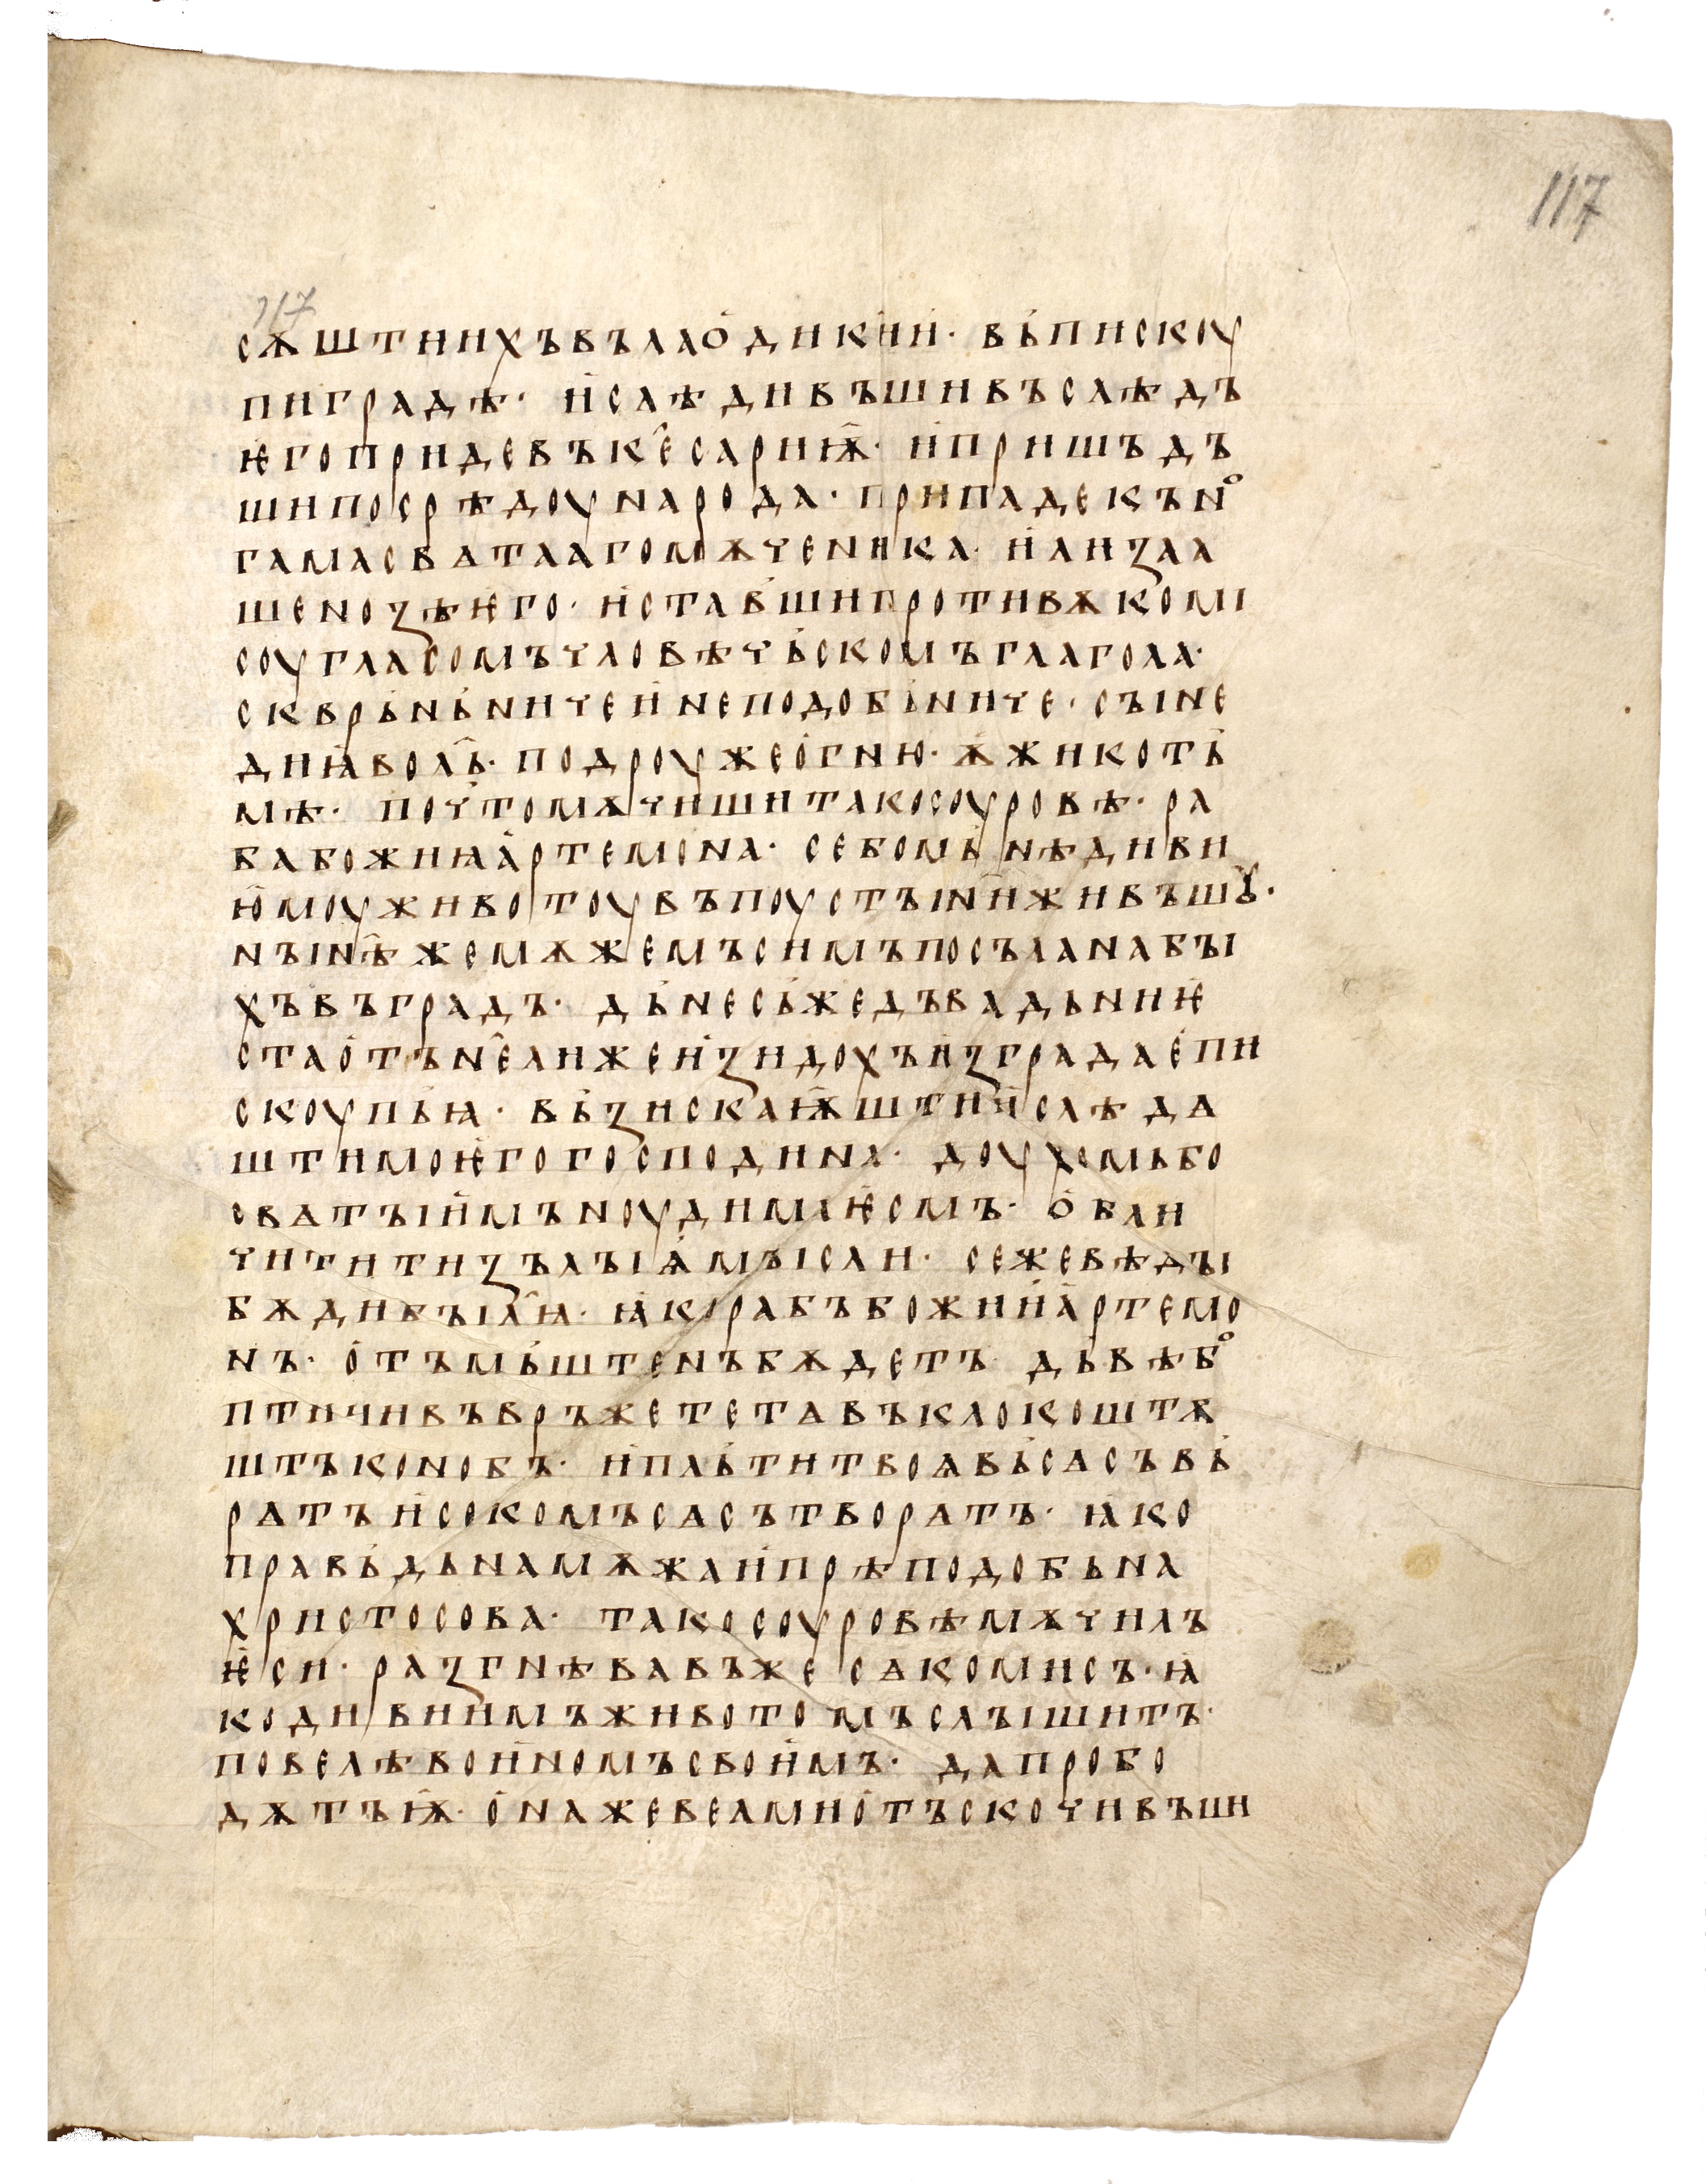 117
117
сѫштиихъвълаодикии· вьпискоу
пиградѣ· ислѣдивъшивъслѣдъ
ѥгопридевъкесариѭ· ипришъдъ
шипосрѣдоународа· припадекън°
гамасвѧтаагомѫченика· илиꙁаа
шеноꙁѣѥго· иставьшипротивѫкоми
соугласомъчловѣчьскомъглагола·
сквръньничеинеподобьниче· съıне
диꙗволь· подроужеогню· ѫжикоть
мѣ· почтомѫчишитакосоуровѣ· ра
бабожиꙗартемона· себомьнѣдиви
юмоуживотоувъпоустъıниживъшꙋ·
нъıнѣжемѫжемъсимъпосъланабъı
хъвъградъ· дьнесьжедъвадьниѥ
стаотънелижеиꙁидохъиꙁградаепи
скоупьꙗ· вьꙁискаѭштиислѣдѧ
штимоѥгогосподина· доухомьбо
свѧтъıимъноудимаѥсмъ· обли
чититиꙁълъıѩмъıсли· сежевѣдъı
бѫдивъıлꙗ· ꙗкорабъбожииартемо
нъ· отъмьштенъбѫдетъ· дъвѣб°
птичивъвръжететѧвъклокоштѫ
штъконобъ· ипльтитвоѩвьсѧсъвь
рѧтъисокомъсѧсътворѧтъ· ꙗко
правьдьнамѫжаипрѣподобьна
христосова· такосоуровѣмѫчилъ
ѥси· раꙁгнѣвавъжесѧкомисъ·ꙗ
кодивиимъживотомъслъıшитъ·
повелѣвоиномъсвоимъ· дапробо
дѫтъѭ· онажевелмиотъскочивъши